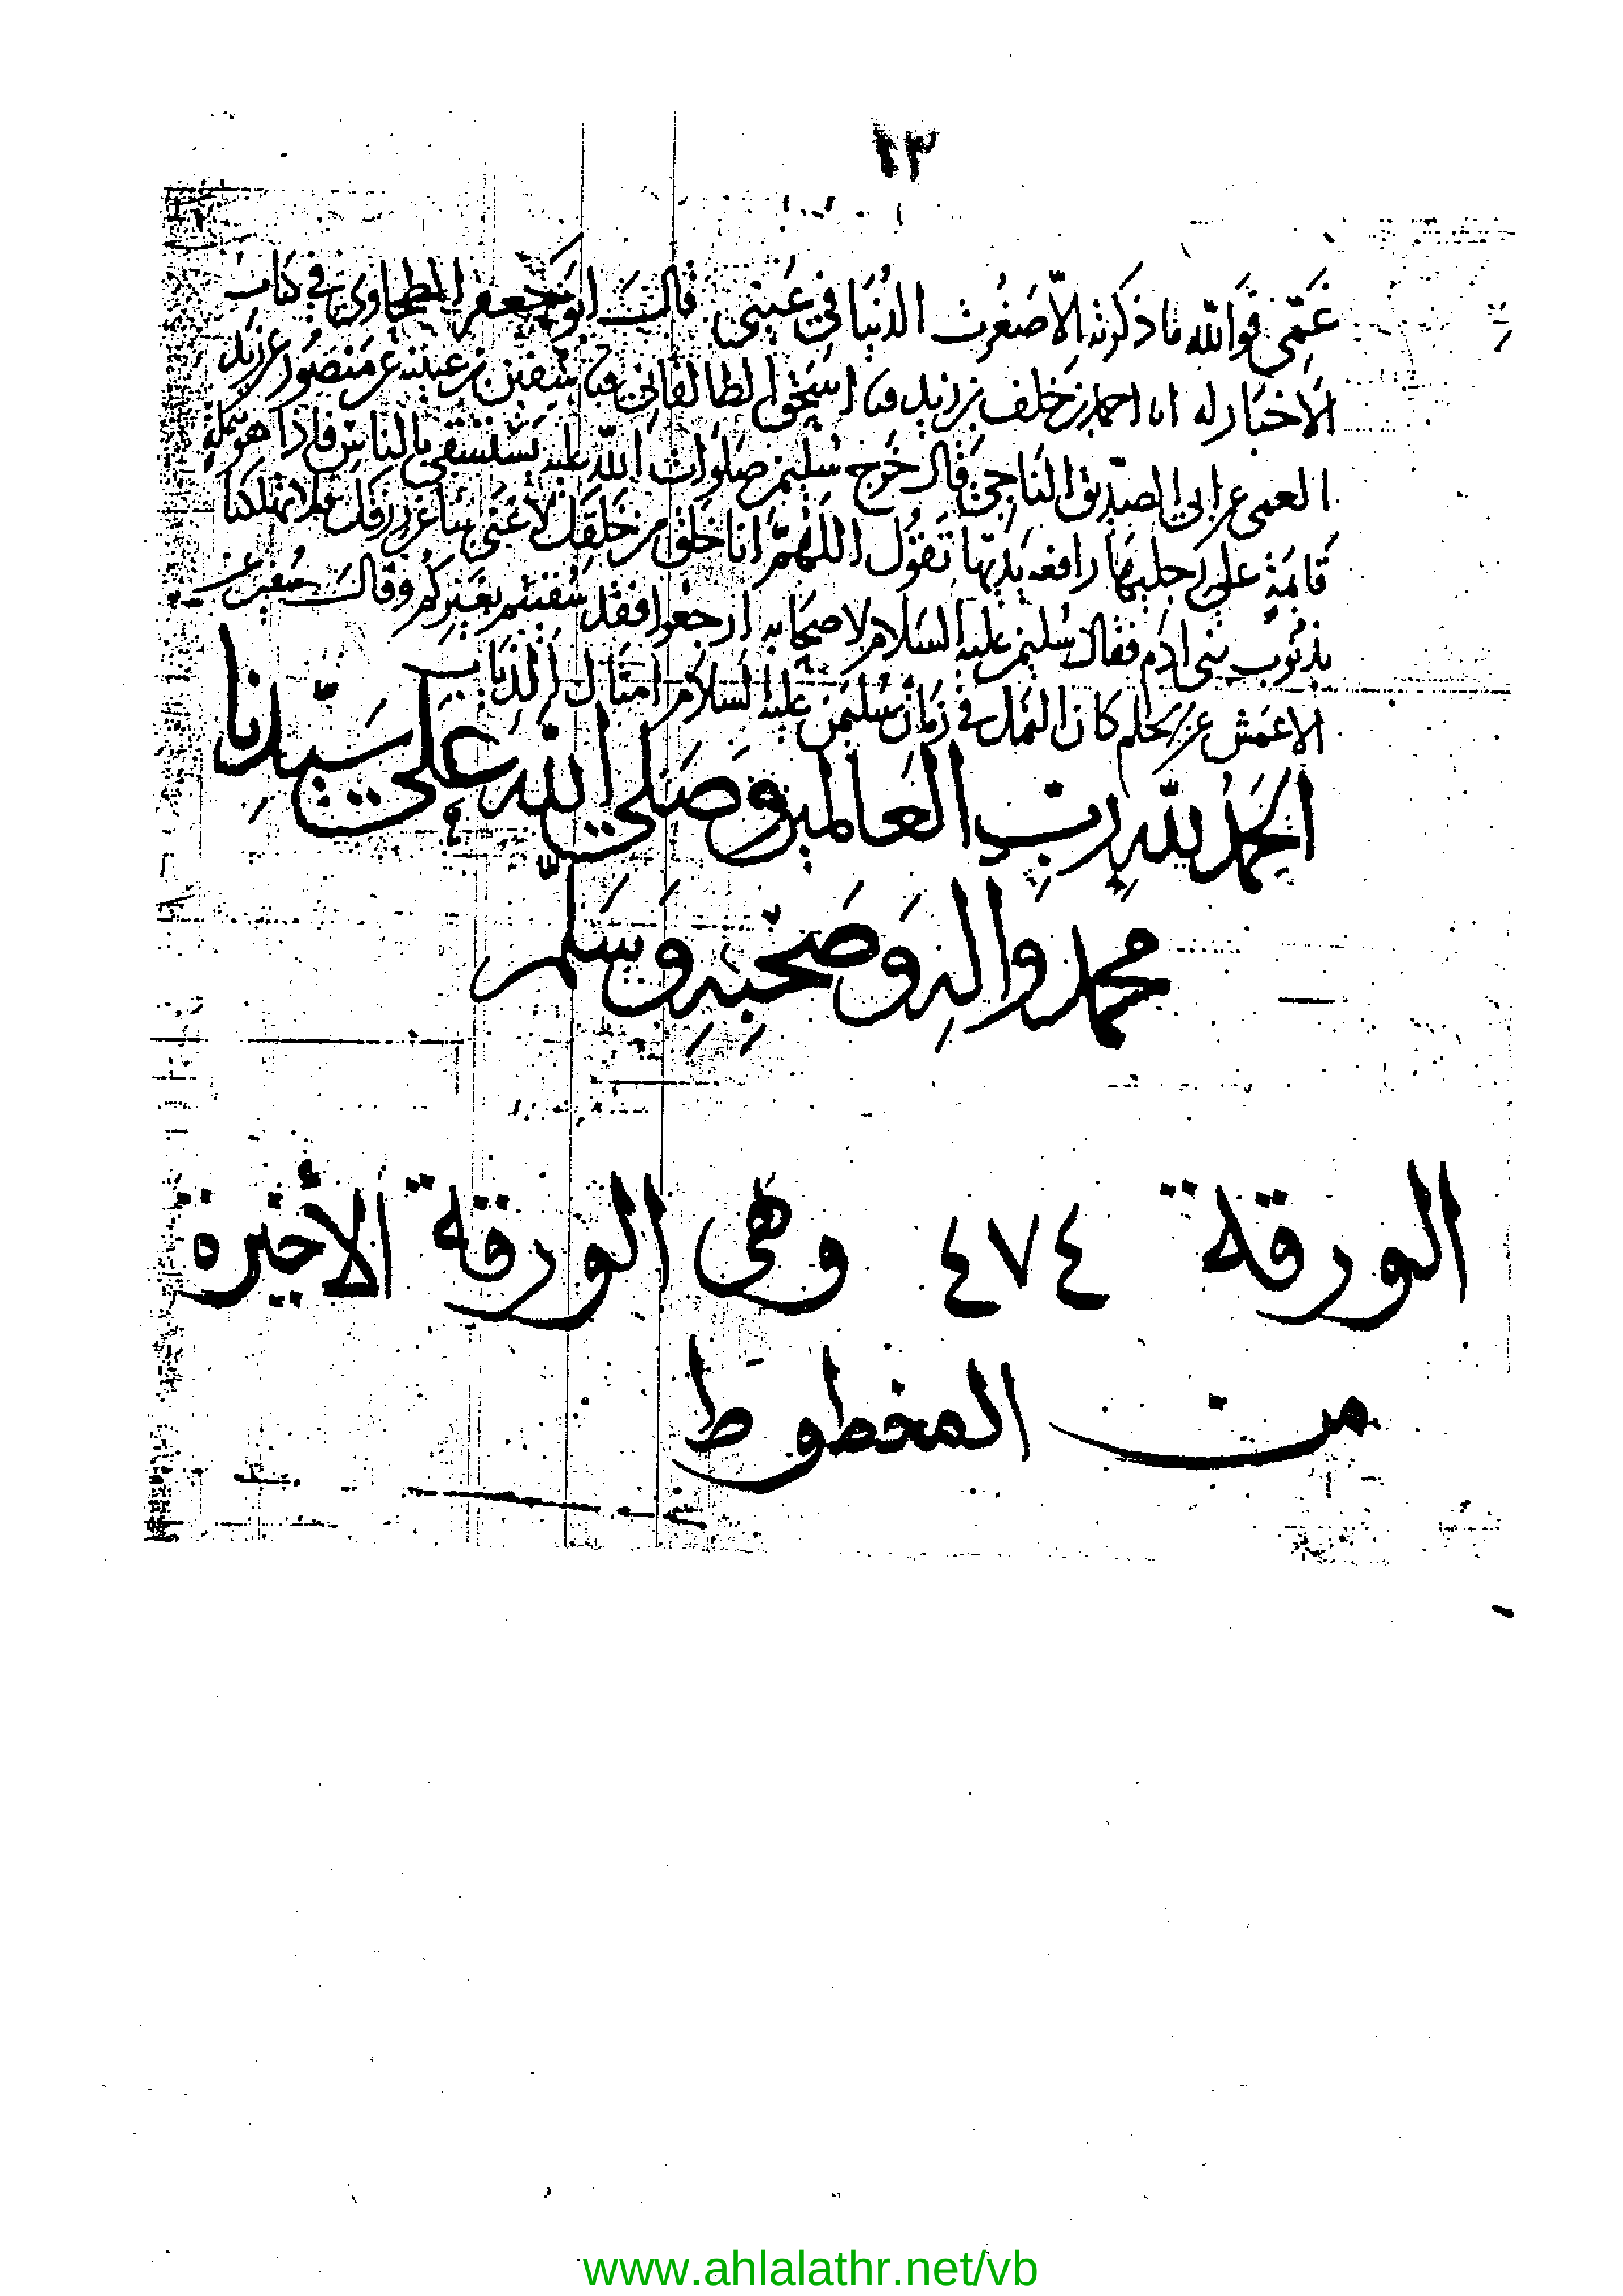 ١٣
عمّي فوالله ما ذكرته الّا صغرت الدنيا في عيني قال ابو جعفر الطحاوي في كتاب
الاخبار له انا احمد بن خلف بن زيد فنا اسحق الطالقاني فنا سفين بن عيينة عن منصور عن زيد
العمي عن ابي الصديق الناجي قال خرج سليمن صلوات الله عليه يستسقي بالناس فاذا هو بنملة
قايمة على رجليها رافعة يديها تقول اللهمّ انا خلق من خلقك لا غنى بنا عن رزقك فلا تهلكنا
بذنوب بني ادم فقال سليمن عليه السلام لاصحابه ارجعوا فقد سقيتم بغيركم وقال سفين عن
الاعمش عن كان النمل في زمان سليمن عليه السلام امثال الذباب
الحمد لله رب العالمين وصلى الله على سيّدنا
محمد واله وصحبه وسلّم
الورقة ٤٧٤ وهى الورقة الأخيرة
من المخطوط
www.ahlalathr.net/vb